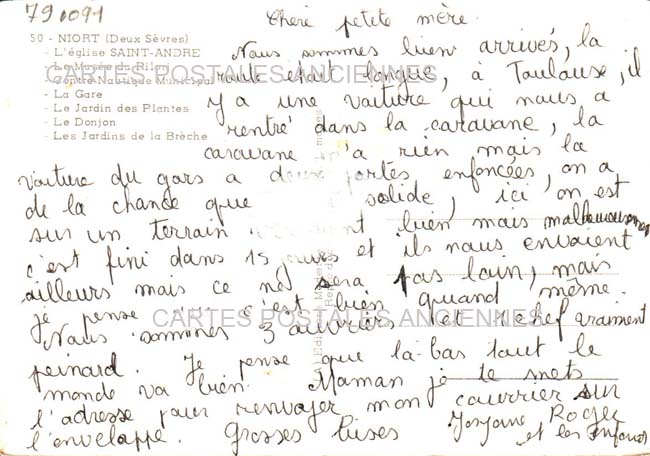 791091
Cheré petite mère.
50 - NIORT (Deux Sèvres)
- L'église SAINT-ANDRE
- Le Musée du Pilori
- Centre Nautique Municipal
- La Gare
- Le Jardin des Plantes
- Le Donjon
- Les Jardins de la Brèche
CARTES POSTALES ANCIENNES
Nous sommes bien arrivés, la
route était longue, à Toulouse, il
y a une voiture qui nous a
rentré dans la caravane, la
caravane n'a rien mais la
voiture du gars a deux portes enfoncées, on a
de la chance que solide, ici on est
sur un terrain bien mais malheureusement
c'est fini dans 15 jours et ils nous envoient
ailleurs mais ce ne sera pas loin, mais
je pense c'est bien quand même.
CARTES POSTALES ANCIENNES
Nous sommes 3 ouvriers et 1 chef vraiment
peinard. Je pense que là-bas tout le
monde va bien. Maman je te mets
l'adresse pour renvoyer mon courrier sur
l'enveloppe. Grosses bises Josyane Roger
et les enfants